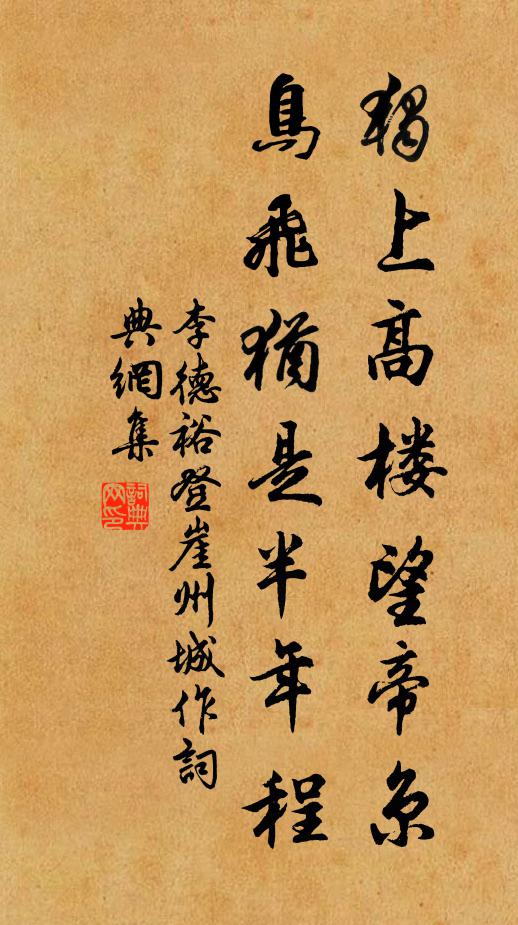 獨上高楼望帝京
鳥飛猶是半年程
李德裕登崖州城作詞
典網集
詞典網印